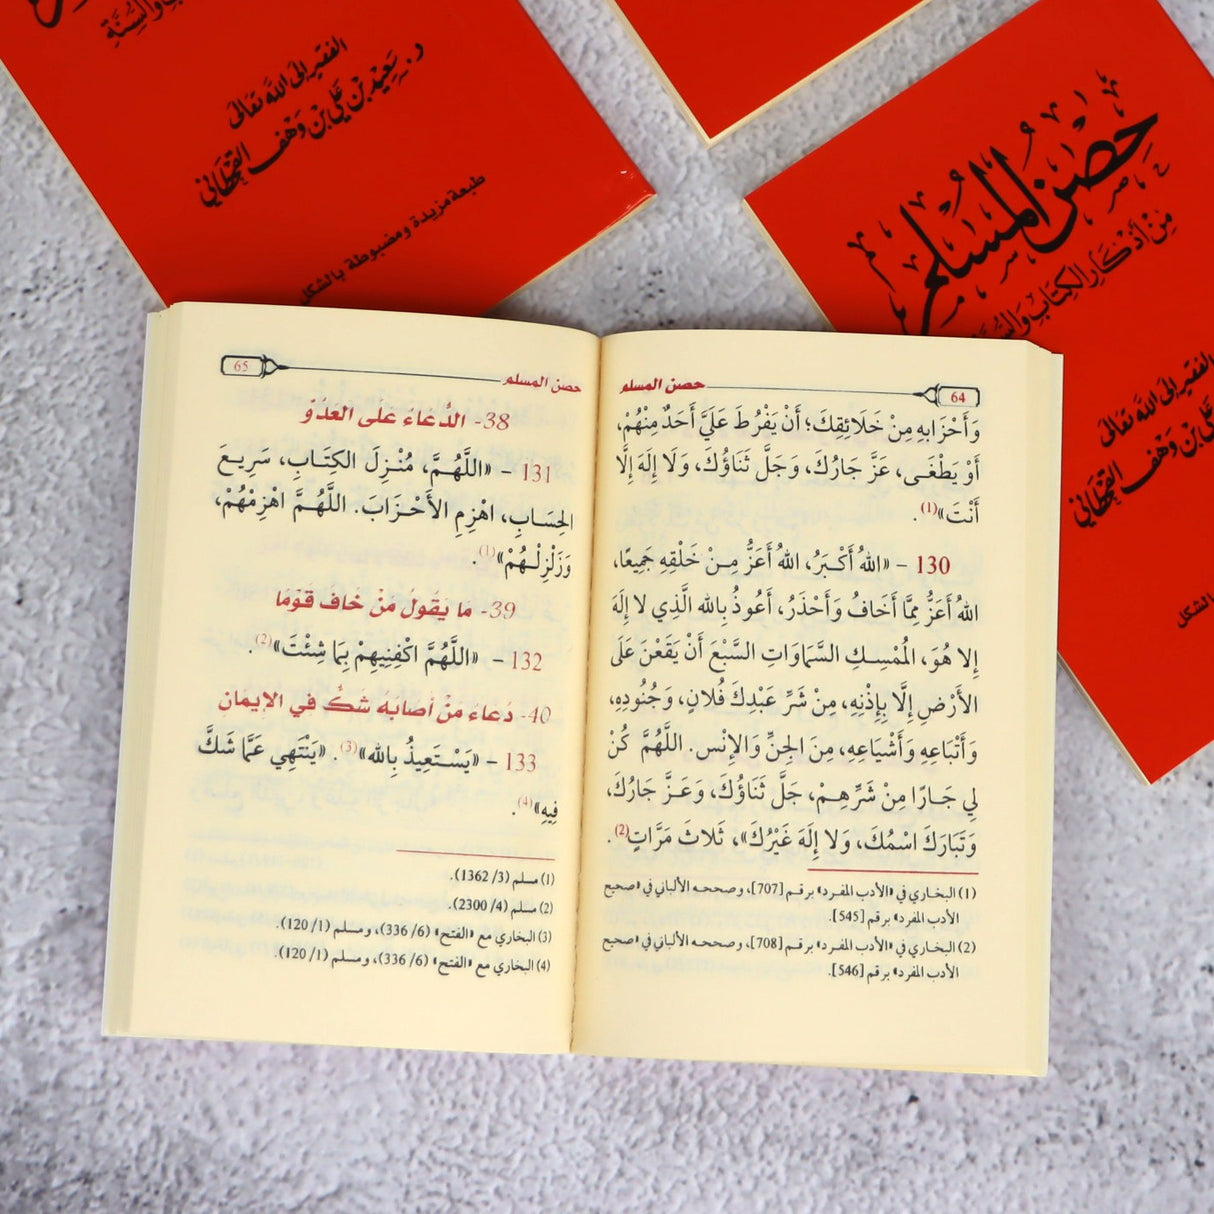 من أذكار الكتاب والسُّنَّةِ
الفقير إلى الله تعالى
د. سَعِيد بْن عَلي بْن وَهْف القحطاني
طبعة مزيدة ومضبوطة بالشكل
حِصْنُ المُسْلِمِ
مِنْ أَذْكَارِ الكِتَابِ وَالسُّنَّةِ
الفقير إلى الله تعالى
عَلي بْن وَهْف القحطاني
بالشكل
64
حصن المسلم
وَأَحْزَابِهِ مِنْ خَلَائِقِكَ؛ أَنْ يَفْرُطَ عَلَيَّ أَحَدٌ مِنْهُمْ،
أَوْ يَطْغَى، عَزَّ جَارُكَ، وَجَلَّ ثَنَاؤُكَ، وَلَا إِلَهَ إِلَّا
أَنْتَ»(1).
130 – «اللهُ أَكْبَرُ، اللهُ أَعَزُّ مِنْ خَلْقِهِ جَمِيعًا،
اللهُ أَعَزُّ مِمَّا أَخَافُ وَأَحْذَرُ، أَعُوذُ بِاللهِ الَّذِي لا إِلَهَ
إِلا هُوَ، الْمُمْسِكِ السَّمَاوَاتِ السَّبْعَ أَنْ يَقَعْنَ عَلَى
الأَرْضِ إِلَّا بِإِذْنِهِ، مِنْ شَرِّ عَبْدِكَ فُلَانٍ، وَجُنُودِهِ،
وَأَتْبَاعِهِ وَأَشْيَاعِهِ، مِنَ الجِنِّ وَالإِنْسِ. اللَّهُمَّ كُنْ
لِي جَارًا مِنْ شَرِّهِمْ، جَلَّ ثَنَاؤُكَ، وَعَزَّ جَارُكَ،
وَتَبَارَكَ اسْمُكَ، وَلا إِلَهَ غَيْرُكَ»، ثَلَاثَ مَرَّاتٍ(2).
(1) البخاري في «الأدب المفرد» برقم [707]، وصححه الألباني في «صحيح
الأدب المفرد» برقم [545].
(2) البخاري في «الأدب المفرد» برقم [708]، وصححه الألباني في «صحيح
الأدب المفرد» برقم [546].
65
حصن المسلم
38- الدُّعَاءُ عَلَى العَدُوِّ
131 – «اللَّهُمَّ، مُنْزِلَ الكِتَابِ، سَرِيعَ
الحِسَابِ، اهْزِمِ الأَحْزَابَ. اللَّهُمَّ اهْزِمْهُمْ،
وَزَلْزِلْهُمْ»(1).
39- مَا يَقُولُ مَنْ خَافَ قَوْمًا
132 – «اللَّهُمَّ اكْفِنِيهِمْ بِمَا شِئْتَ»(2).
40- دُعَاءُ مَنْ أَصَابَهُ شَكٌّ فِي الإِيمَانِ
133 – «يَسْتَعِيذُ بِاللهِ»(3). «يَنْتَهِي عَمَّا شَكَّ
فِيهِ»(4).
(1) مسلم (3/ 1362).
(2) مسلم (4/ 2300).
(3) البخاري مع «الفتح» (6/ 336)، ومسلم (1/ 120).
(4) البخاري مع «الفتح» (6/ 336)، ومسلم (1/ 120).